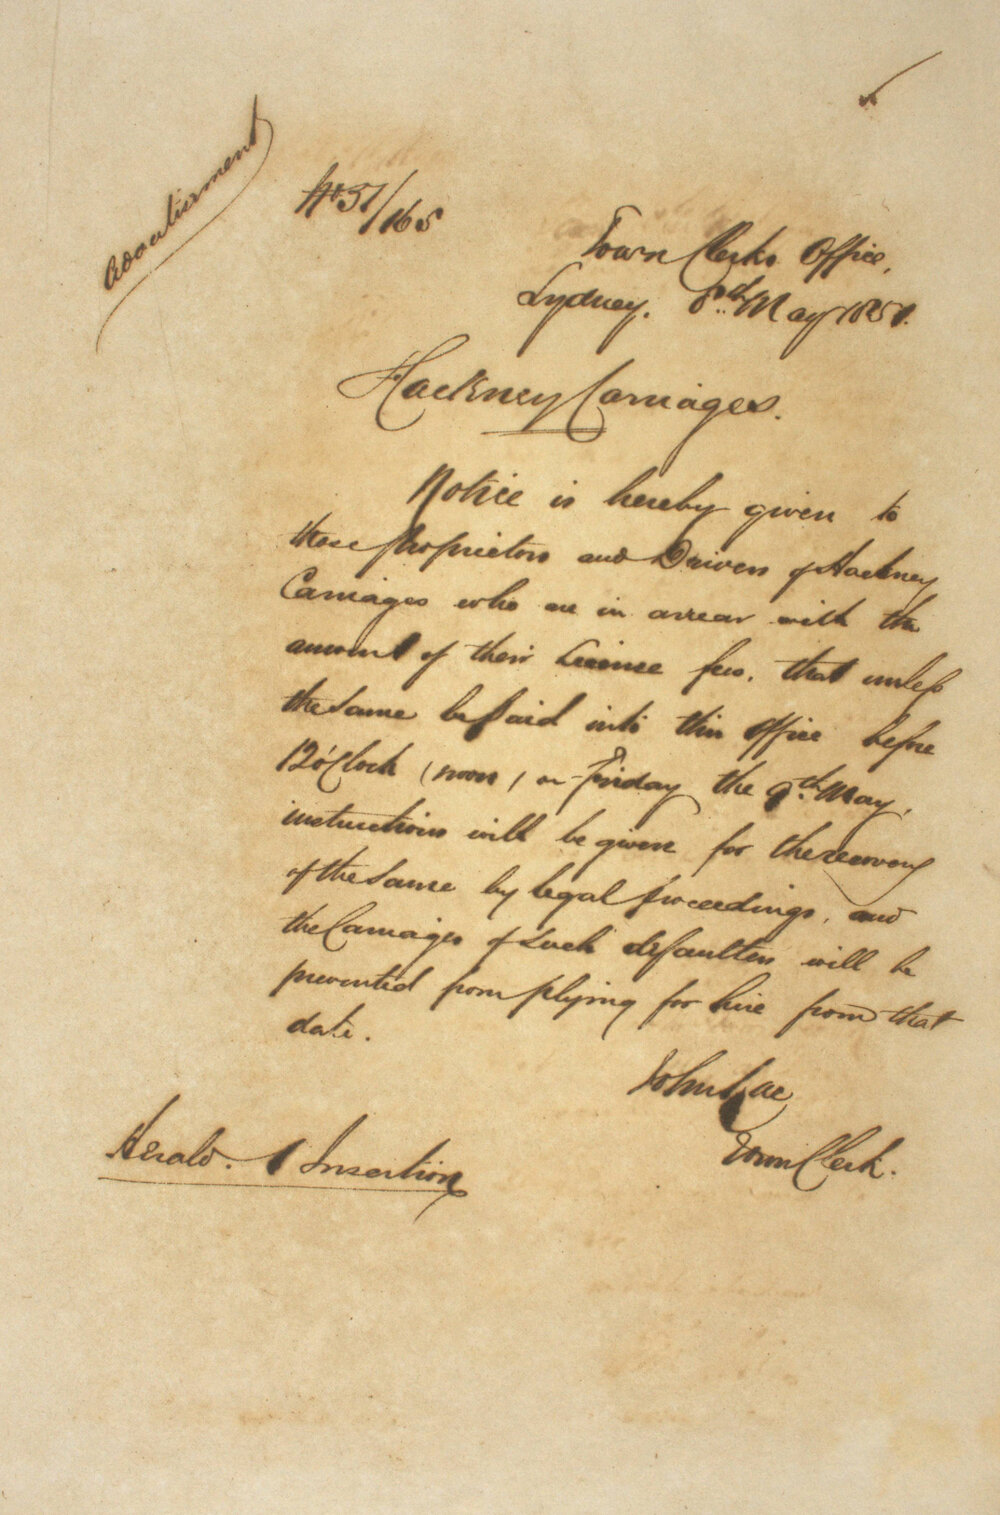 Advertisement
No 51/165
Town Clerks Office,
Sydney. 8th May 1851.
Hackney Carriages.
Notice is hereby given to
those proprietors and Drivers of Hackney
Carriages who are in arrear with the
amount of their License fees, that unless
the same be paid into this Office before
12 o'Clock (noon) on Friday the 9th May,
instructions will be given for the recovery
of the same by legal proceedings, and
the Carriages of such defaulters will be
prevented from plying for hire from that
date.
John Rae
Town Clerk.
Herald. 1 Insertion